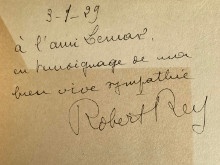 3-1-29
à l'ami Lemar.
en témoignage de ma
bien vive sympathie
Robert Rey